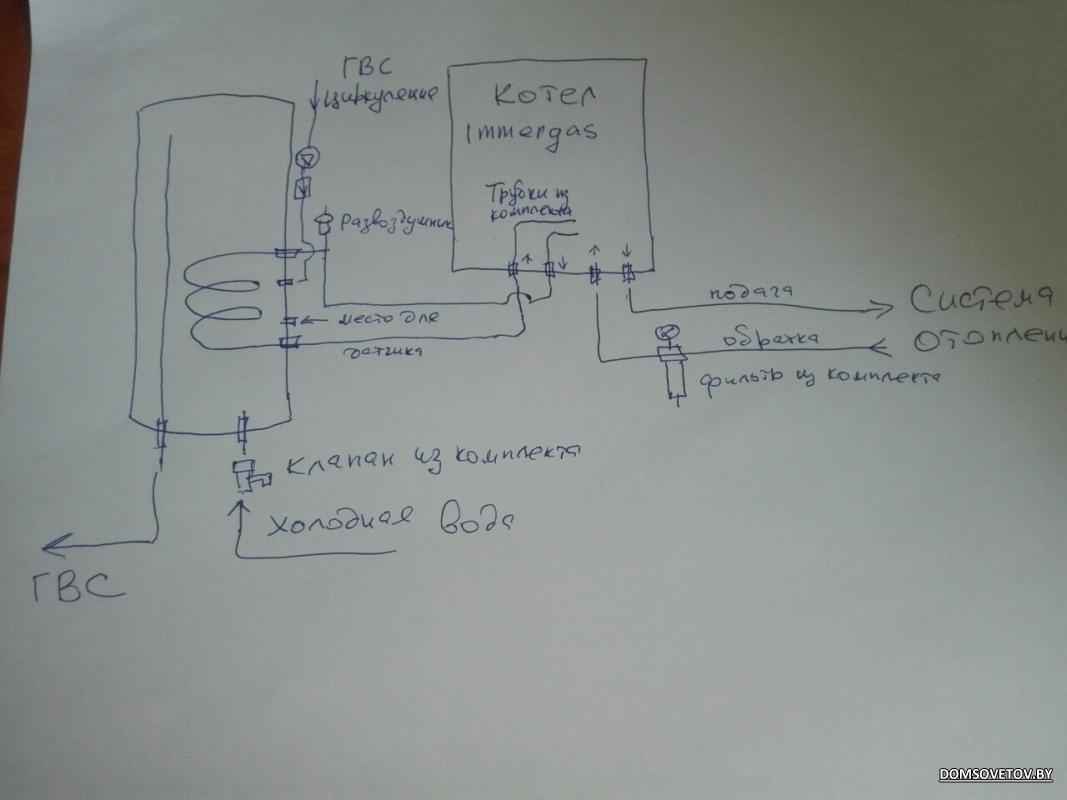 ГВС
циркуляция
Котел
Immergas
Трубки из
комплекта
Развоздушник
место для
датчика
подача
Система
обратка
отоплени
фильтр из комплекта
клапан из комплекта
холодная вода
ГВС
DOMSOVETOV.BY